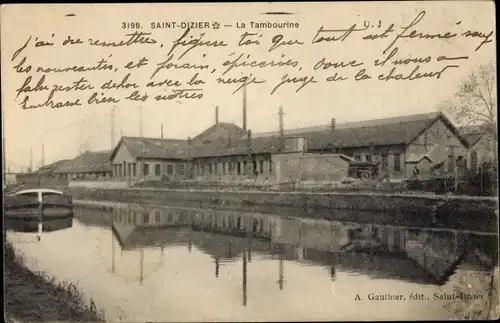 3198. SAINT-DIZIER — La Tambourine
J'ai du remettre, figure toi que tout est fermé sauf
les nouveautés, et forain, épiceries,
fait dehors avec la neige juge de la chaleur
Embrasse bien les nôtres
A. Gauthier, édit., Saint-Dizier